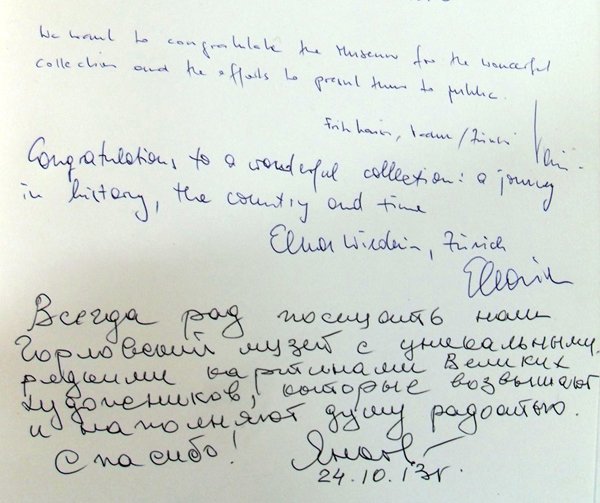 We want to congratulate the Museum for the wonderful
collection and the efforts to present them to public.
/Zürich
Congratulations to a wonderful collection: a journey
in history, the country and time
Zürich
Всегда рад посещать наш
Горловский музей с уникальными,
редкими картинами Великих
художников, которые возвышают
и наполняют душу радостью.
Спасибо!
24.10.13г.